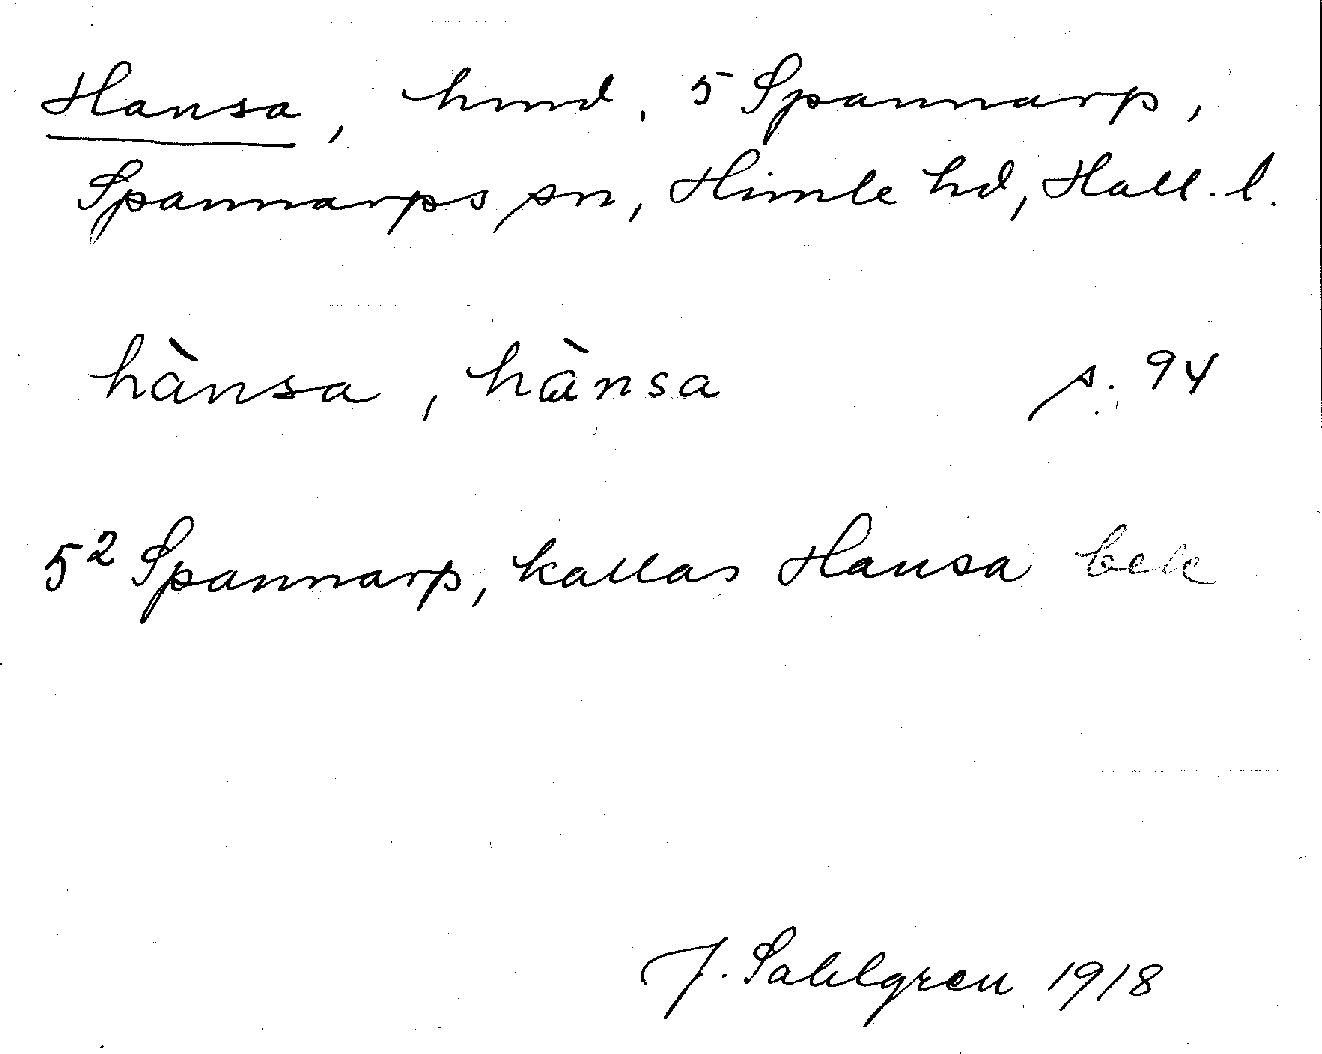 Hansa, hmd. 5 Spannarp,
Spannarps sn, Himle hd, Hall. l.
hànsa, hànsa s. 94
5² Spannarp, kallas Hansa
J. Sahlgren 1918